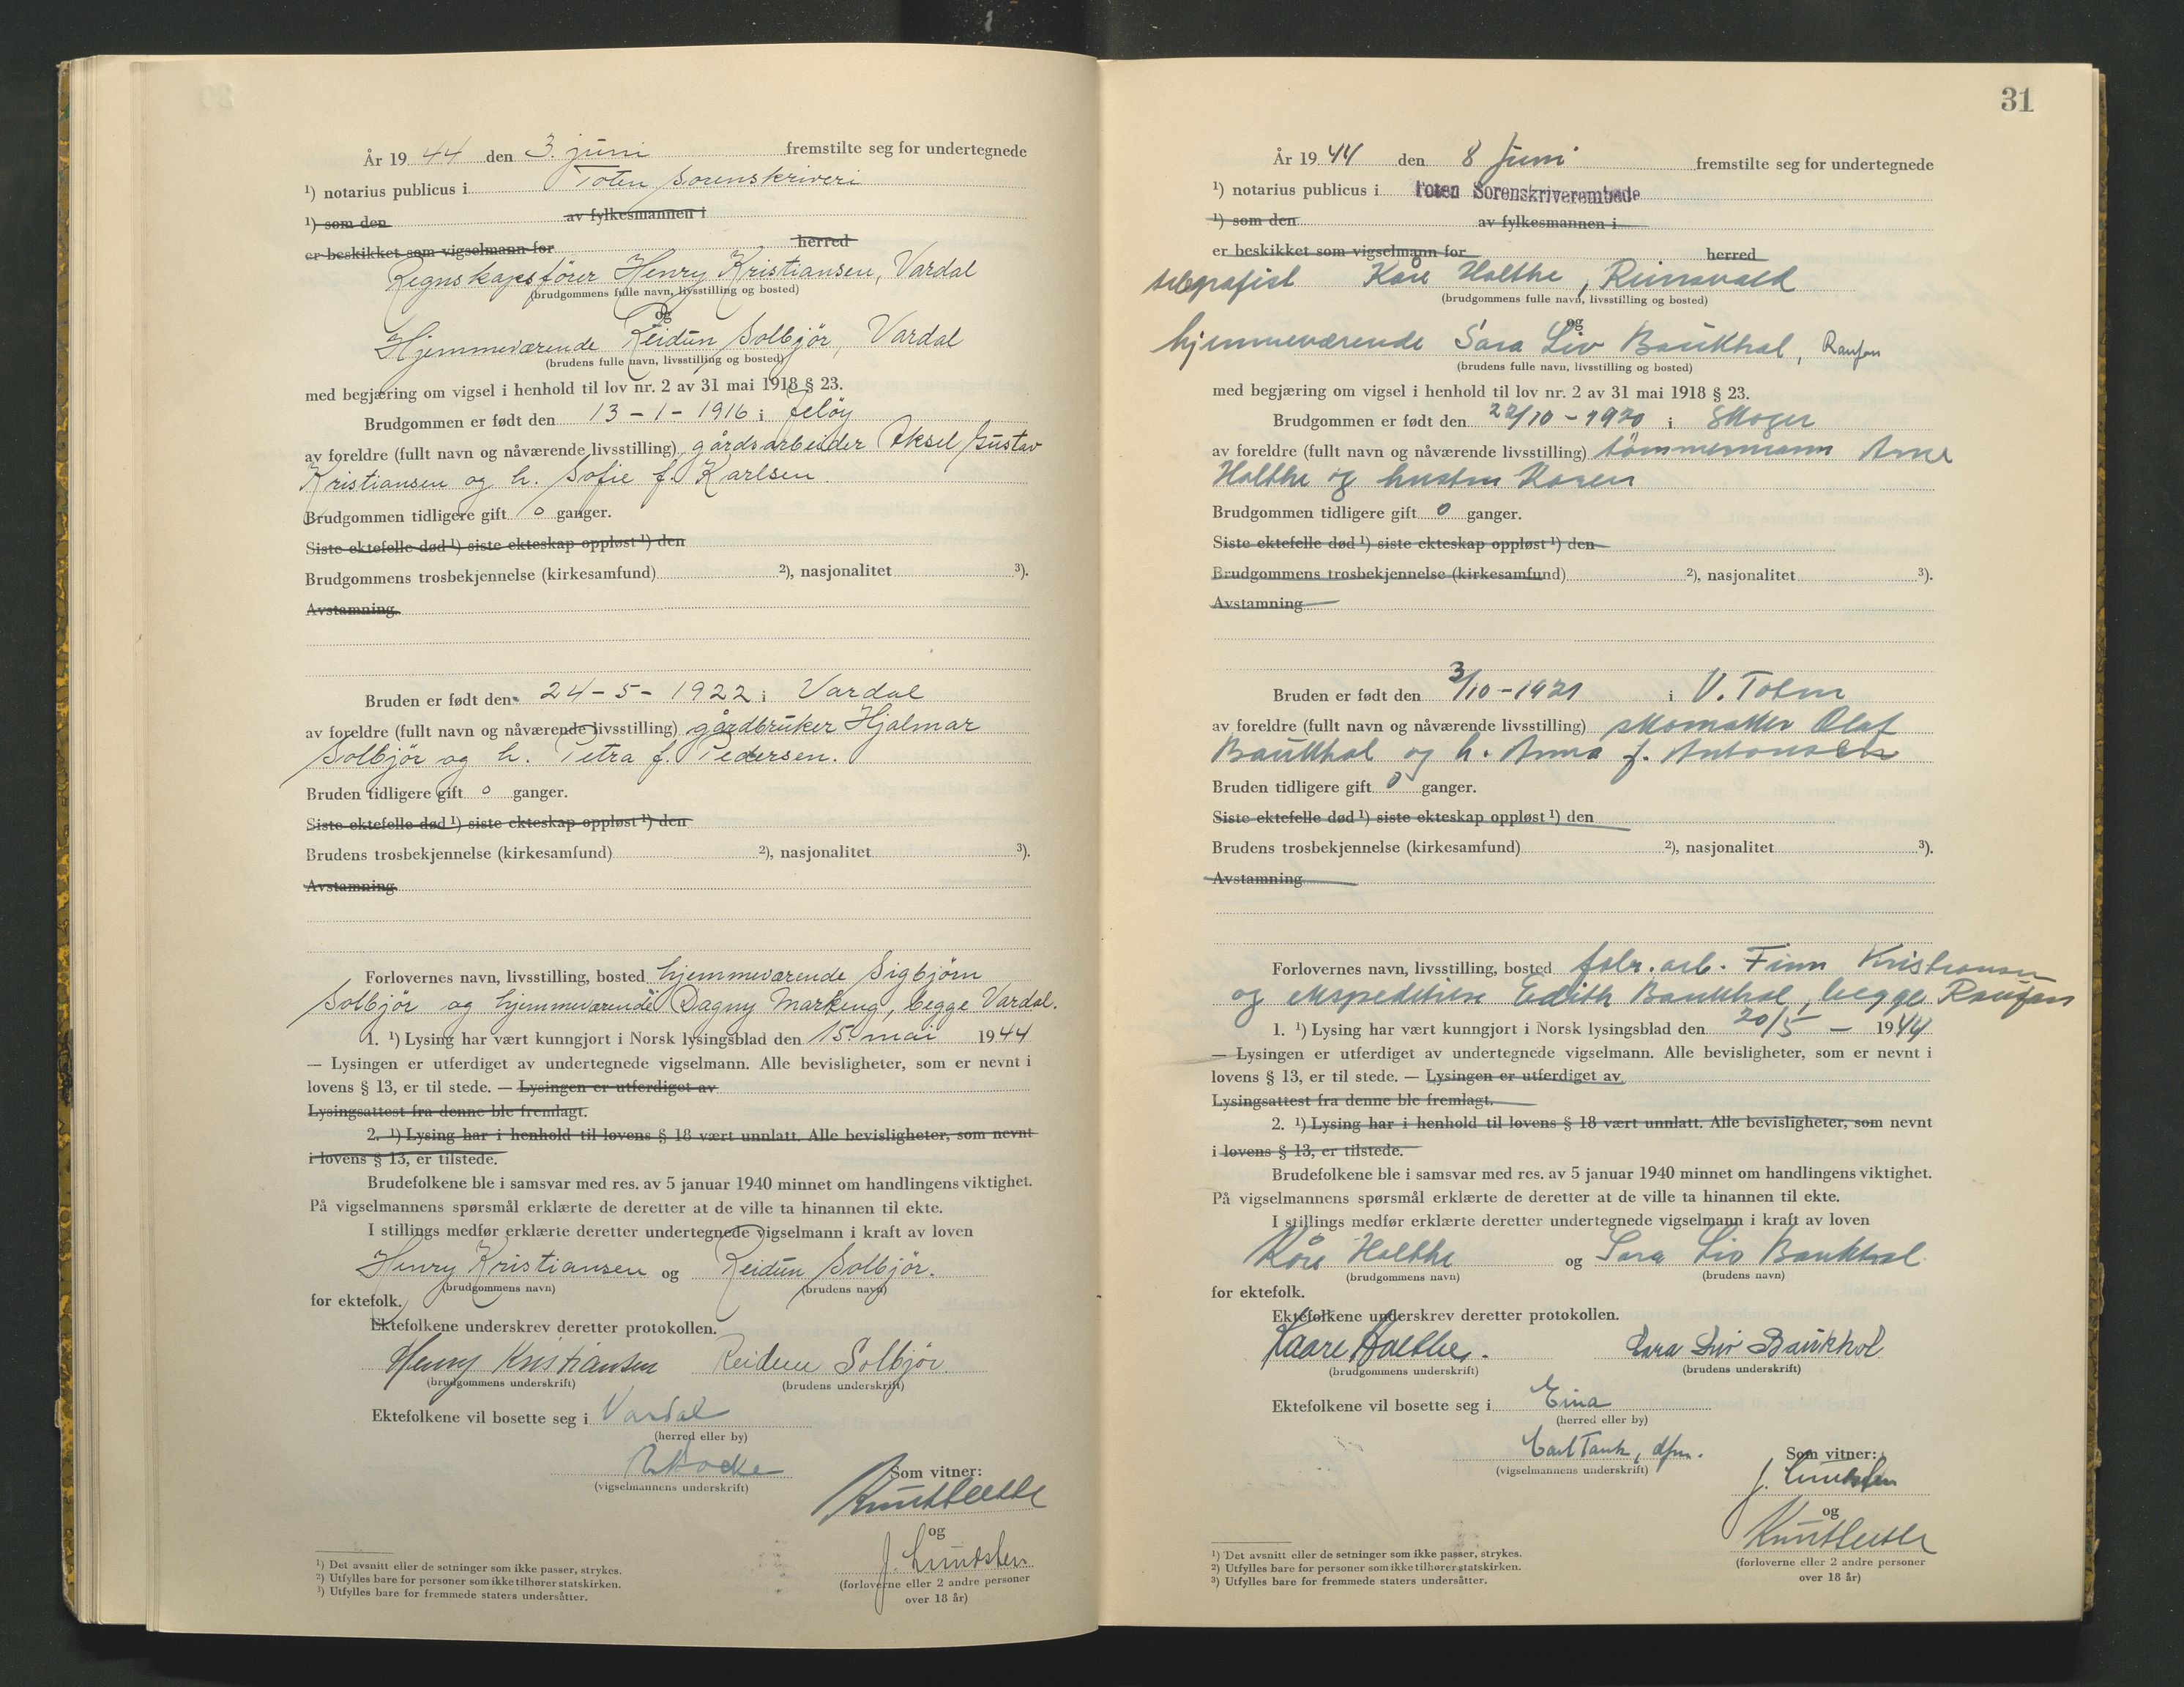 År 19 44 den 3. juni fremstilte seg for undertegnede
¹) notarius publicus i Toten Sorenskriveri
¹) som den av fylkesmannen i
er beskikket som vigselmann for herred
Regnskapsfører Henry Kristiansen, Vardal
(brudgommens fulle navn, livsstilling og bosted)
og
Hjemmeværende Reidun Solbjör, Vardal
(brudens fulle navn, livsstilling og bosted)
med begjæring om vigsel i henhold til lov nr. 2 av 31 mai 1918 § 23.
Brudgommen er født den 13-1-1916 i Jeløy
av foreldre (fullt navn og nåværende livsstilling) gårdsarbeider Aksel Gustav
Kristiansen og h. Sofie f. Karlsen.
Brudgommen tidligere gift 0 ganger.
Siste ektefelle død ¹) siste ekteskap oppløst ¹) den
Brudgommens trosbekjennelse (kirkesamfund) ²), nasjonalitet ³).
Avstamning
Bruden er født den 24-5-1922 i Vardal
av foreldre (fullt navn og nåværende livsstilling) gårdbruker Hjalmar
Solbjör og h. Petra f. Pedersen.
Bruden tidligere gift 0 ganger.
Siste ektefelle død ¹) siste ekteskap oppløst ¹) den
Brudens trosbekjennelse (kirkesamfund) ²), nasjonalitet ³).
Avstamning
Forlovernes navn, livsstilling, bosted hjemmeværende Sigbjörn
Solbjör og hjemmeværende Dagny Markeng, begge Vardal.
1. ¹) Lysing har vært kunngjort i Norsk lysingsblad den 15. mai 1944
— Lysingen er utferdiget av undertegnede vigselmann. Alle bevisligheter, som er nevnt i
lovens § 13, er til stede. — Lysingen er utferdiget av
Lysingsattest fra denne ble fremlagt.
2. ¹) Lysing har i henhold til lovens § 18 vært unnlatt. Alle bevisligheter, som nevnt
i lovens § 13, er tilstede.
Brudefolkene ble i samsvar med res. av 5 januar 1940 minnet om handlingens viktighet.
På vigselmannens spørsmål erklærte de deretter at de ville ta hinannen til ekte.
I stillings medfør erklærte deretter undertegnede vigselmann i kraft av loven
Henry Kristiansen og Reidun Solbjör.
(brudgommens navn) (brudens navn)
for ektefolk.
Ektefolkene underskrev deretter protokollen.
Henry Kristiansen Reidun Solbjör
(brudgommens underskrift) (brudens underskrift)
Ektefolkene vil bosette seg i Vardal
(herred eller by)
(vigselmannens underskrift)
Som vitner:
og
J. Lundsten
(forloverne eller 2 andre personer
over 18 år)
¹) Det avsnitt eller de setninger som ikke passer, strykes.
²) Utfylles bare for personer som ikke tilhører statskirken.
³) Utfylles bare for fremmede staters undersåtter.
31
År 19 44 den 8 Juni fremstilte seg for undertegnede
¹) notarius publicus i Toten Sorenskriverembede
¹) som den av fylkesmannen i
er beskikket som vigselmann for herred
telegrafist Kåre Holthe, Reinsvold
(brudgommens fulle navn, livsstilling og bosted)
og
hjemmeværende Sara Liv Baukhol, Raufoss
(brudens fulle navn, livsstilling og bosted)
med begjæring om vigsel i henhold til lov nr. 2 av 31 mai 1918 § 23.
Brudgommen er født den 22/10-1920 i Skoger
av foreldre (fullt navn og nåværende livsstilling) tømmermann Arne
Holthe og hustru Karen
Brudgommen tidligere gift 0 ganger.
Siste ektefelle død ¹) siste ekteskap oppløst ¹) den
Brudgommens trosbekjennelse (kirkesamfund) ²), nasjonalitet ³).
Avstamning
Bruden er født den 3/10-1921 i V. Toten
av foreldre (fullt navn og nåværende livsstilling) skomaker Olaf
Baukhol og h. Anna f. Antonsen
Bruden tidligere gift 0 ganger.
Siste ektefelle død ¹) siste ekteskap oppløst ¹) den
Brudens trosbekjennelse (kirkesamfund) ²), nasjonalitet ³).
Avstamning
Forlovernes navn, livsstilling, bosted fabr. arb. Finn Kristiansen
og ekspeditrise Edith Baukhol, begge Raufoss
1. ¹) Lysing har vært kunngjort i Norsk lysingsblad den 20/5 — 1944
— Lysingen er utferdiget av undertegnede vigselmann. Alle bevisligheter, som er nevnt i
lovens § 13, er til stede. — Lysingen er utferdiget av
Lysingsattest fra denne ble fremlagt.
2. ¹) Lysing har i henhold til lovens § 18 vært unnlatt. Alle bevisligheter, som nevnt
i lovens § 13, er tilstede.
Brudefolkene ble i samsvar med res. av 5 januar 1940 minnet om handlingens viktighet.
På vigselmannens spørsmål erklærte de deretter at de ville ta hinannen til ekte.
I stillings medfør erklærte deretter undertegnede vigselmann i kraft av loven
Kåre Holthe og Sara Liv Baukhol
(brudgommens navn) (brudens navn)
for ektefolk.
Ektefolkene underskrev deretter protokollen.
Kaare Holthe. Sara Liv Baukhol
(brudgommens underskrift) (brudens underskrift)
Ektefolkene vil bosette seg i Eina
(herred eller by)
Carl Tank, dfm.
(vigselmannens underskrift)
Som vitner:
J. Lundsten
og
(forloverne eller 2 andre personer
over 18 år)
¹) Det avsnitt eller de setninger som ikke passer, strykes.
²) Utfylles bare for personer som ikke tilhører statskirken.
³) Utfylles bare for fremmede staters undersåtter.